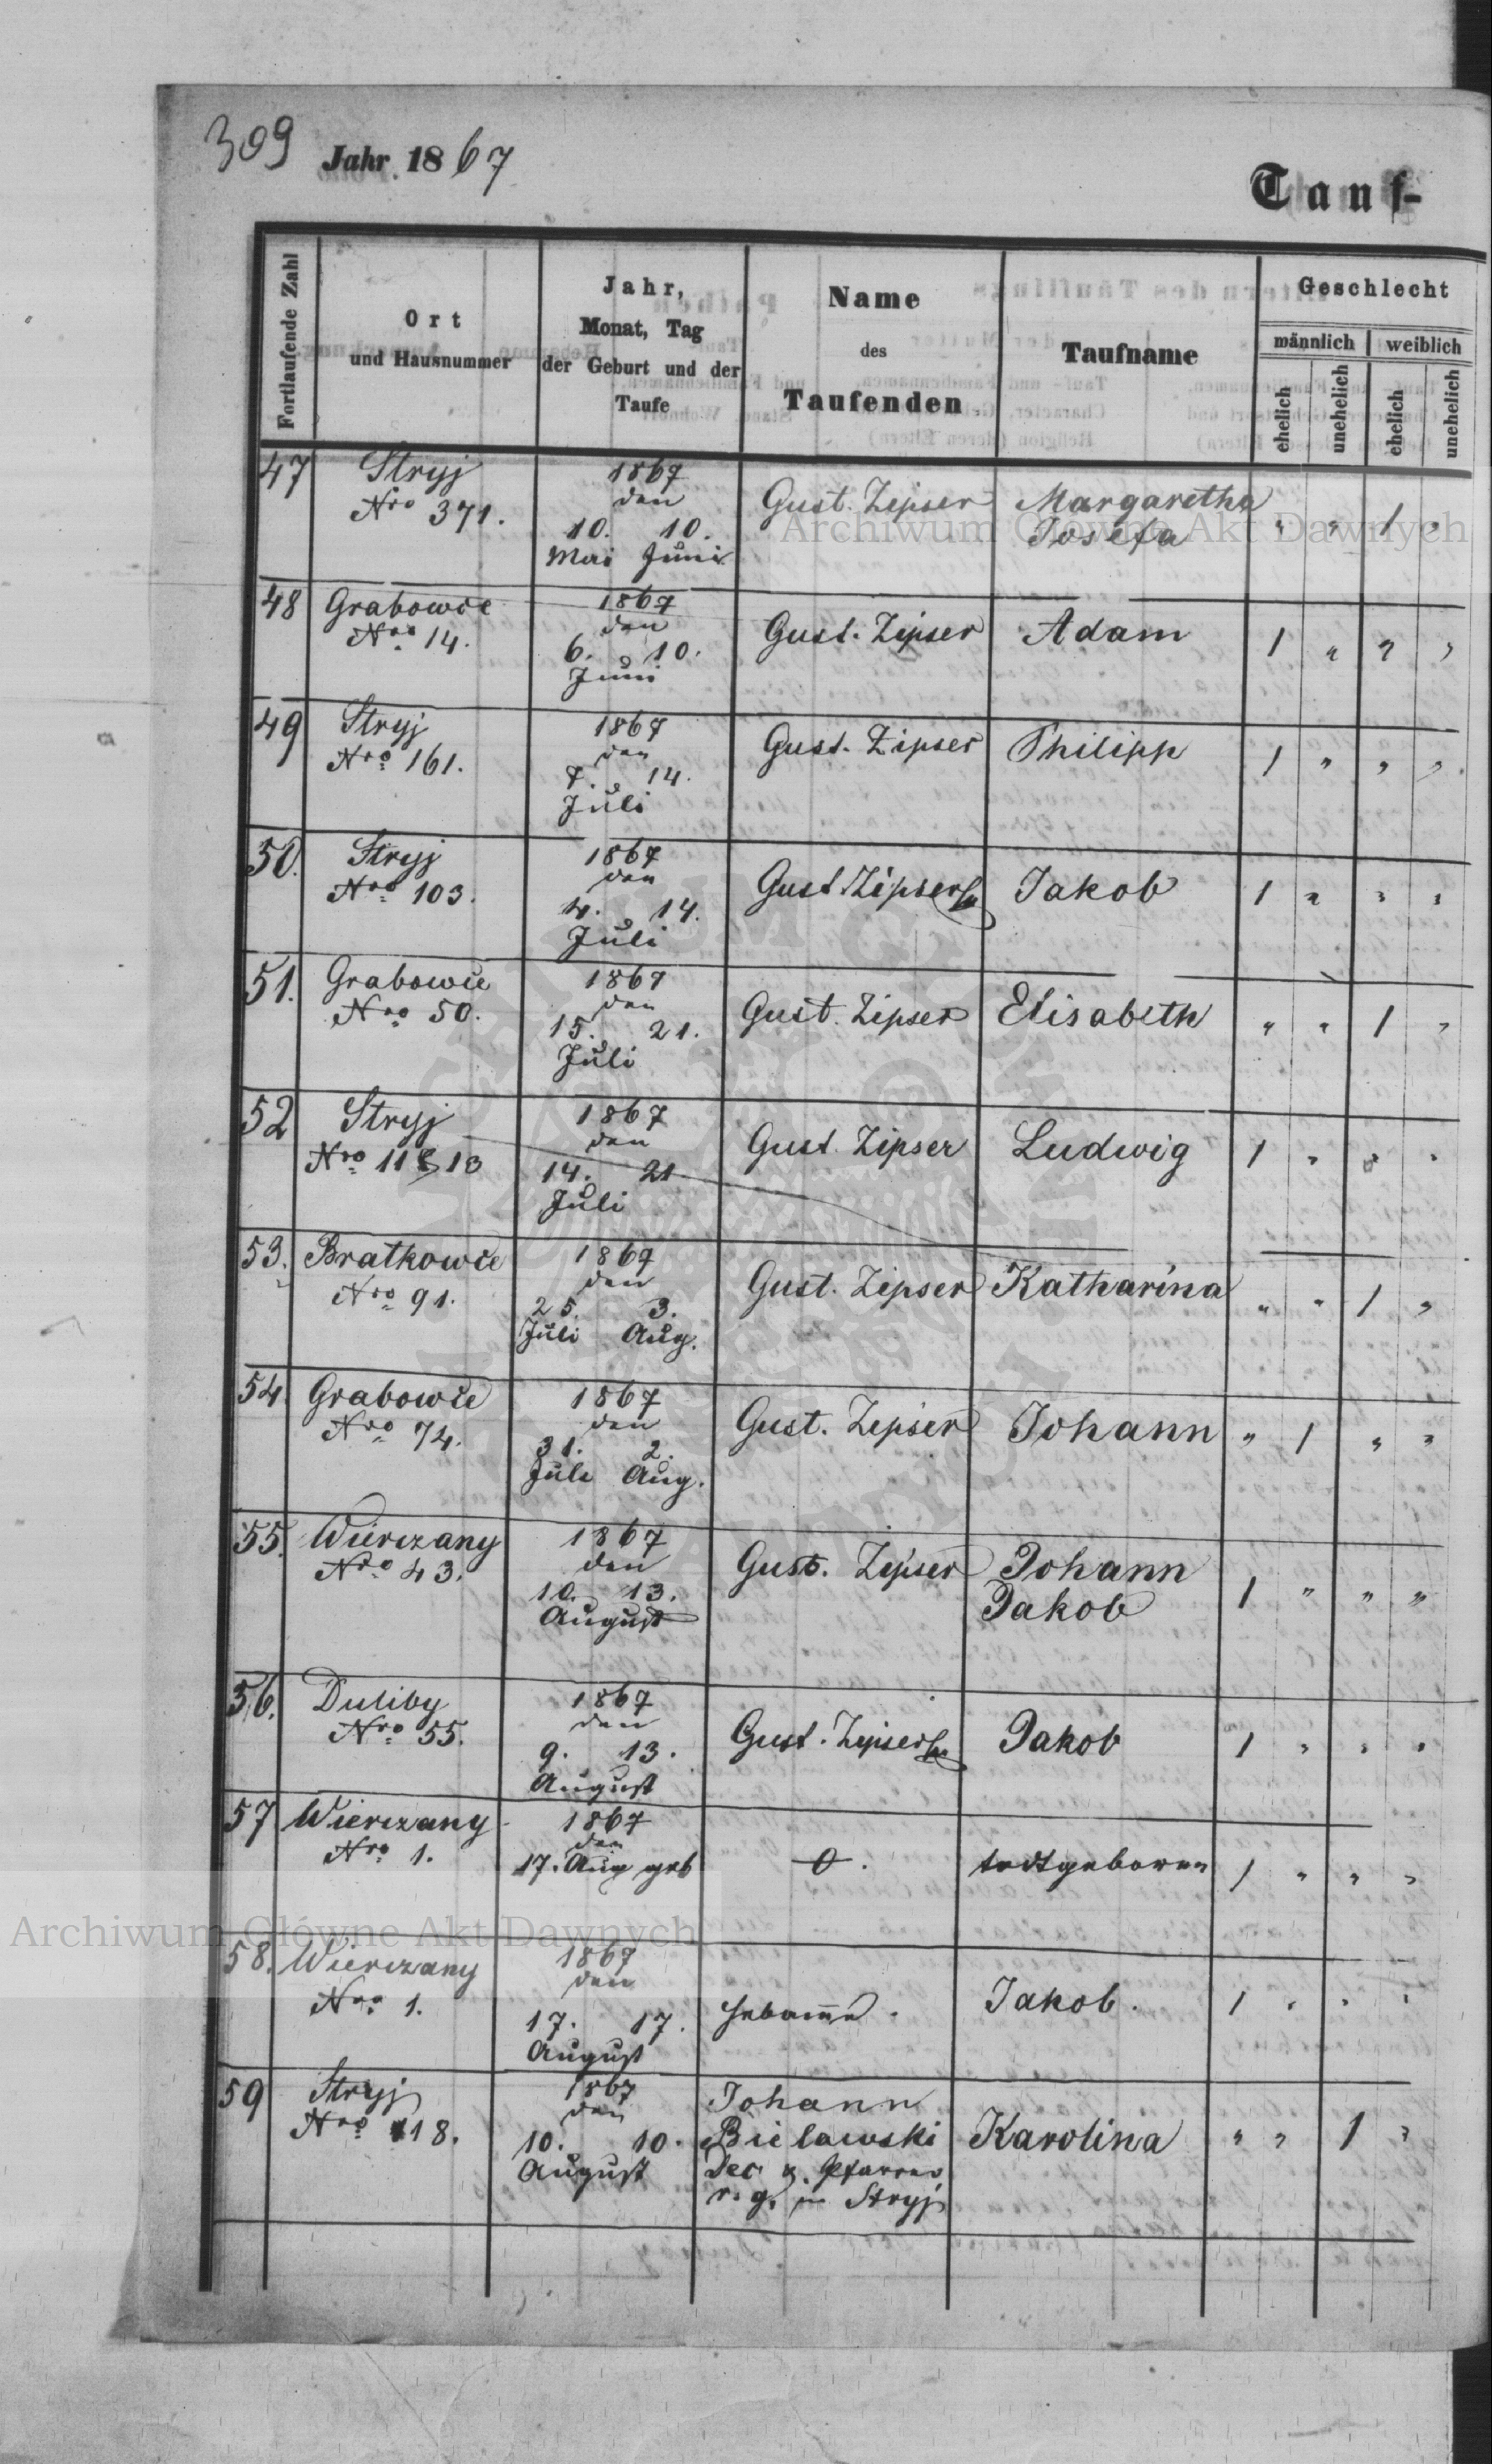 309 Jahr 1867
Tauf-
Fortlaufende Zahl
Ort
und Hausnummer
Jahr,
Monat, Tag
der Geburt und der
Taufe
Name
des
Taufenden
Taufname
Geschlecht
männlich weiblich
ehelich unehelich ehelich unehelich
47 Stryj 1867
Nro 371. den Gust. Zipser Margaretha
10. 10. Josefa " " 1 "
Mai Juni
48 Grabowce 1867
Nro 14. den Gust. Zipser Adam 1 " " "
6. 10.
Juni
49 Stryj 1867
Nro 161. den Gust. Zipser Philipp 1 " " "
7. 14.
Juli
50. Stryj 1867
Nro 103. den Gust Zipser Jakob 1 " " "
4. 14.
Juli
51. Grabowce 1867
Nro 50. den Gust. Zipser Elisabeth " " 1 "
15. 21.
Juli
52 Stryj 1867
Nro 11 13 den Gust. Zipser Ludwig 1 " " "
14. 21
Juli
53. Bratkowce 1867
Nro 91. den Gust. Zipser Katharina " " 1 "
25. 3.
Juli Aug.
54. Grabowce 1867
Nro 74. den Gust. Zipser Johann " 1 " "
31. 2.
Juli Aug.
55. Wierczany 1867
Nro 43. den Gust. Zipser Johann
10. 13. Jakob 1 " " "
August
56. Duliby 1867
Nro 55. den Gust. Zipser Jakob 1 " " "
9. 13.
August
57 Wierczany 1867
Nro 1. den
17. Aug geb 0. todtgeboren 1 " " "
58. Wierczany 1867
Nro 1. den Hebamme. Jakob. 1 " " "
17. 17.
August
59 Stryj 1867 Johann
Nro 118. den Bielawski Karolina " " 1 "
10. 10. Dec. u. Pfarrer
August r. g. in Stryj
Archiwum Główne Akt Dawnych
Archiwum Główne Akt Dawnych